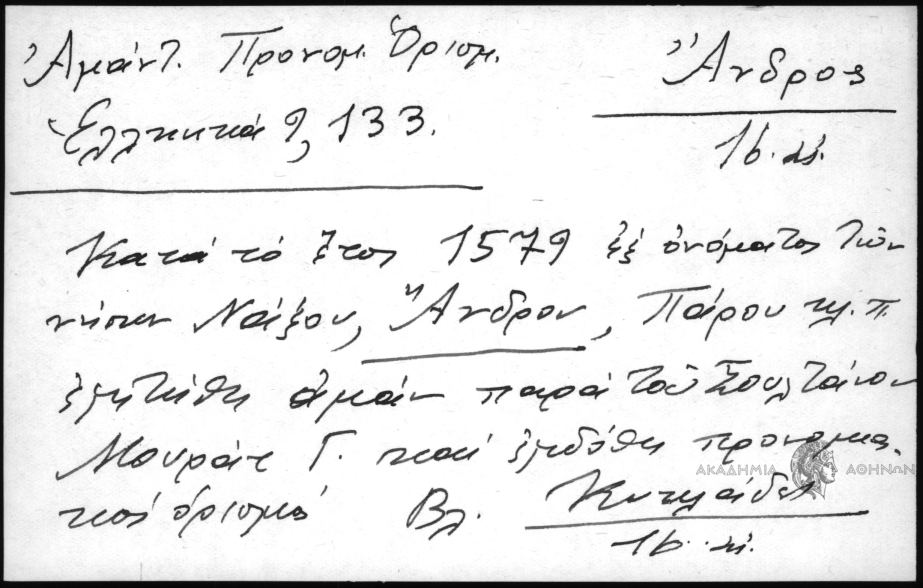 Ἀμάντ. Προνομ. Ὁρισμ.
Ἑλληνικά 9, 133.
Ἄνδρος
16. αἰ.
Κατά τό ἔτος 1579 ἐξ ὀνόματος τῶν
νήσων Νάξου, Ἄνδρου, Πάρου κλ. π.
ἐζητήθη ἀμάν παρά τοῦ Σουλτάνου
Μουράτ Γ. καί ἐξεδόθη προνομια-
κοί ὁρισμοί Βλ. Κυκλάδες
16. αἰ.
ΑΚΑΔΗΜΙΑ ΑΘΗΝΩΝ